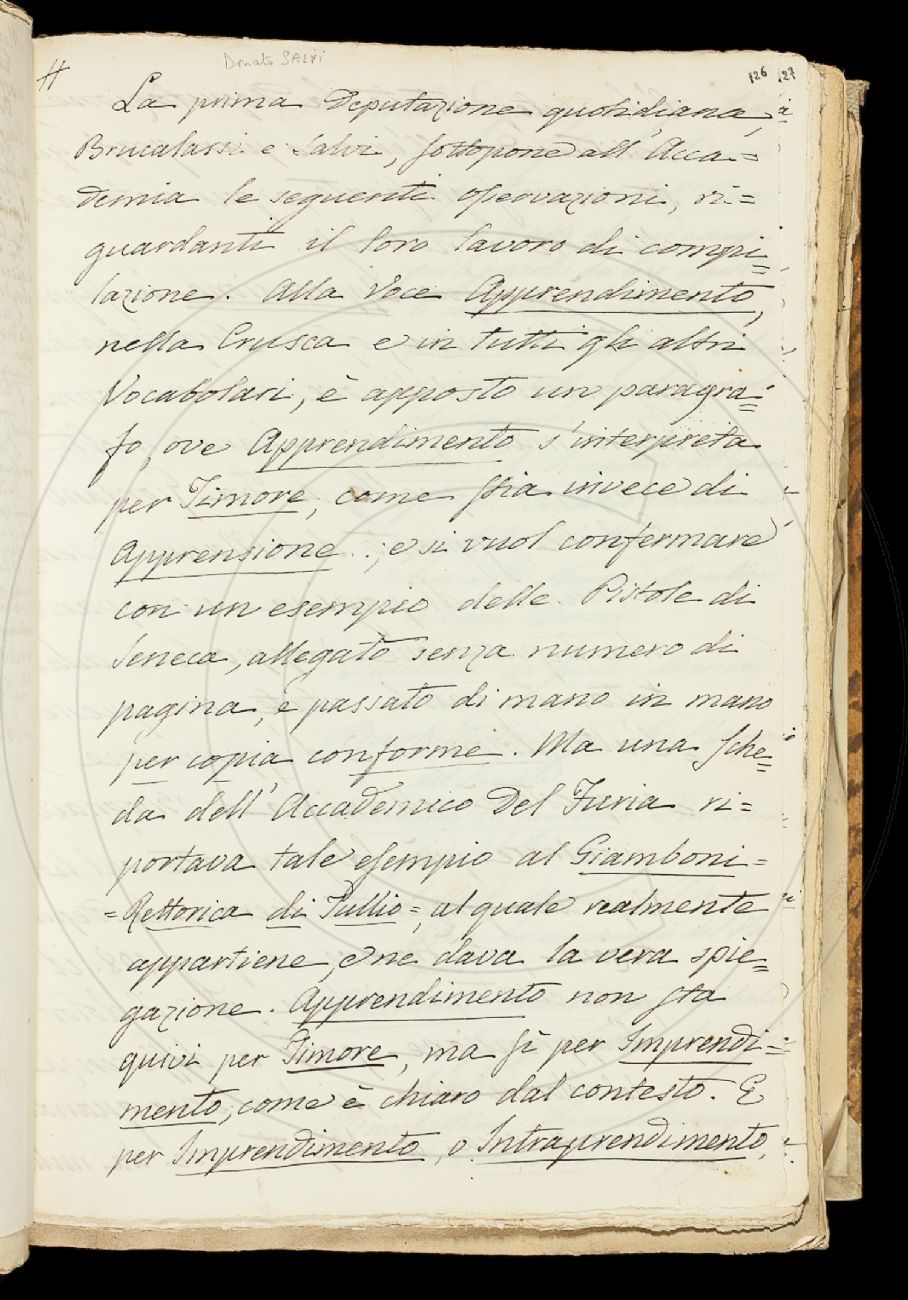 Donato SALVI
126 127
#
La prima Deputazione quotidiana,
Brucalassi e Salvi, sottopone all' Acca=
demia le seguenti osservazioni, ri=
guardanti il loro lavoro di compi=
lazione. Alla Voce Apprendimento,
nella Crusca e in tutti gli altri
Vocabolari, è apposto un paragra=
fo, ove Apprendimento s'interpreta
per Timore, come stia invece di
Apprensione.; e si vuol confermare
con un esempio delle Pistole di
Seneca, allegato senza numero di
pagina, e passato di mano in mano
per copia conforme. Ma una Sche=
da dell' Accademico Del Furia ri=
portava tale esempio al Giamboni=
=Rettorica di Tullio=, al quale realmente
appartiene, e ne dava la vera spie=
gazione. Apprendimento non sta
quivi per Timore, ma sì per Imprendi=
mento, come è chiaro dal contesto. E
per Imprendimento, o Intraprendimento,